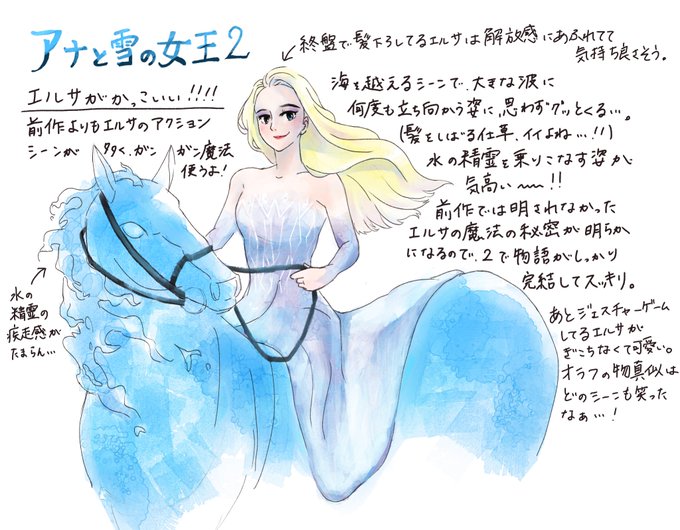 アナと雪の女王2
エルサがかっこいい!!!!
前作よりもエルサのアクション
シーンが多く、ガンガン魔法
使うよ!
終盤で髪下ろしてるエルサは解放感にあふれてて
気持ち良さそう。
海を越えるシーンで、大きな波に
何度も立ち向かう姿に思わずグッとくる…。
(髪をしばる仕草、イイよね…!!)
水の精霊を乗りこなす姿が
気高い〜〜!!
前作では明されなかった
エルサの魔法の秘密が明らか
になるので、2で物語がしっかり
完結してスッキリ。
あとジェスチャーゲーム
してるエルサが
ぎこちなくて可愛い。
オラフの物真似は
どのシーンも笑った
なぁ…!
水の
精霊の
疾走感が
たまらん…